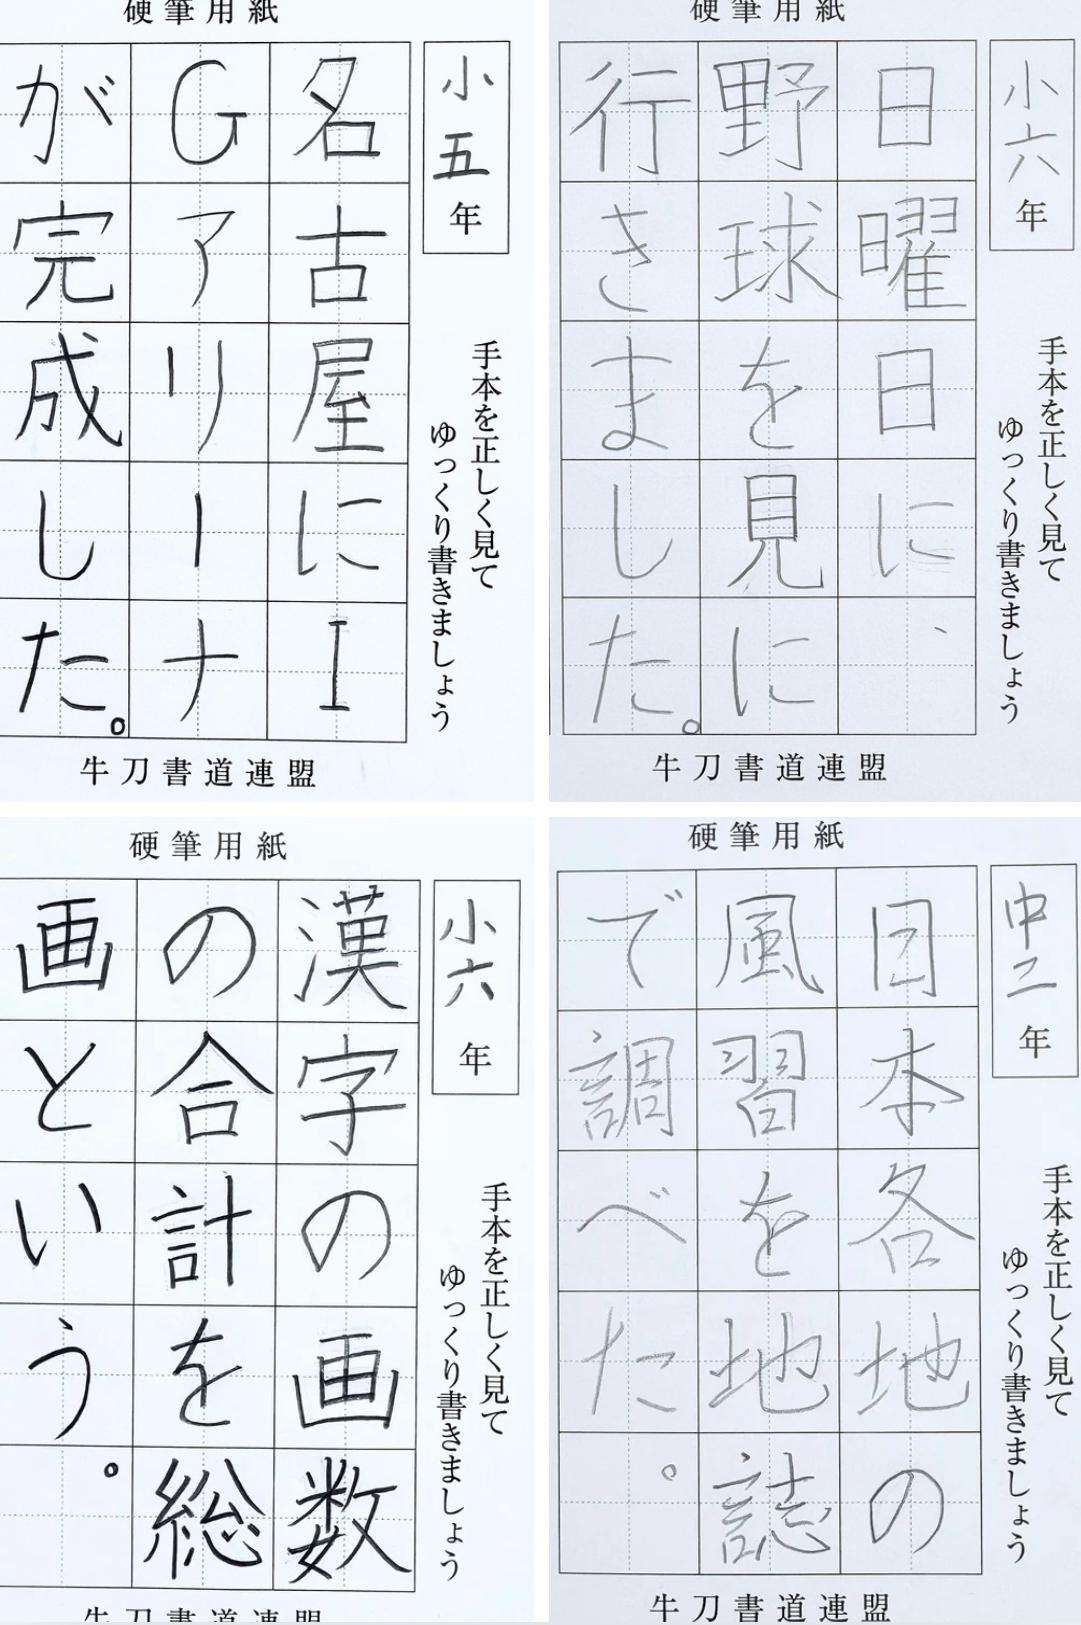 硬筆用紙
小五年
手本を正しく見て
ゆっくり書きましょう
名古屋にI
Gアリーナ
が完成した。
牛刀書道連盟
硬筆用紙
小六年
手本を正しく見て
ゆっくり書きましょう
日曜日に、
野球を見に
行きました。
牛刀書道連盟
硬筆用紙
小六年
手本を正しく見て
ゆっくり書きましょう
漢字の画数
の合計を総
画という。
牛刀書道連盟
硬筆用紙
中二年
手本を正しく見て
ゆっくり書きましょう
日本各地の
風習を地誌
で調べた。
牛刀書道連盟